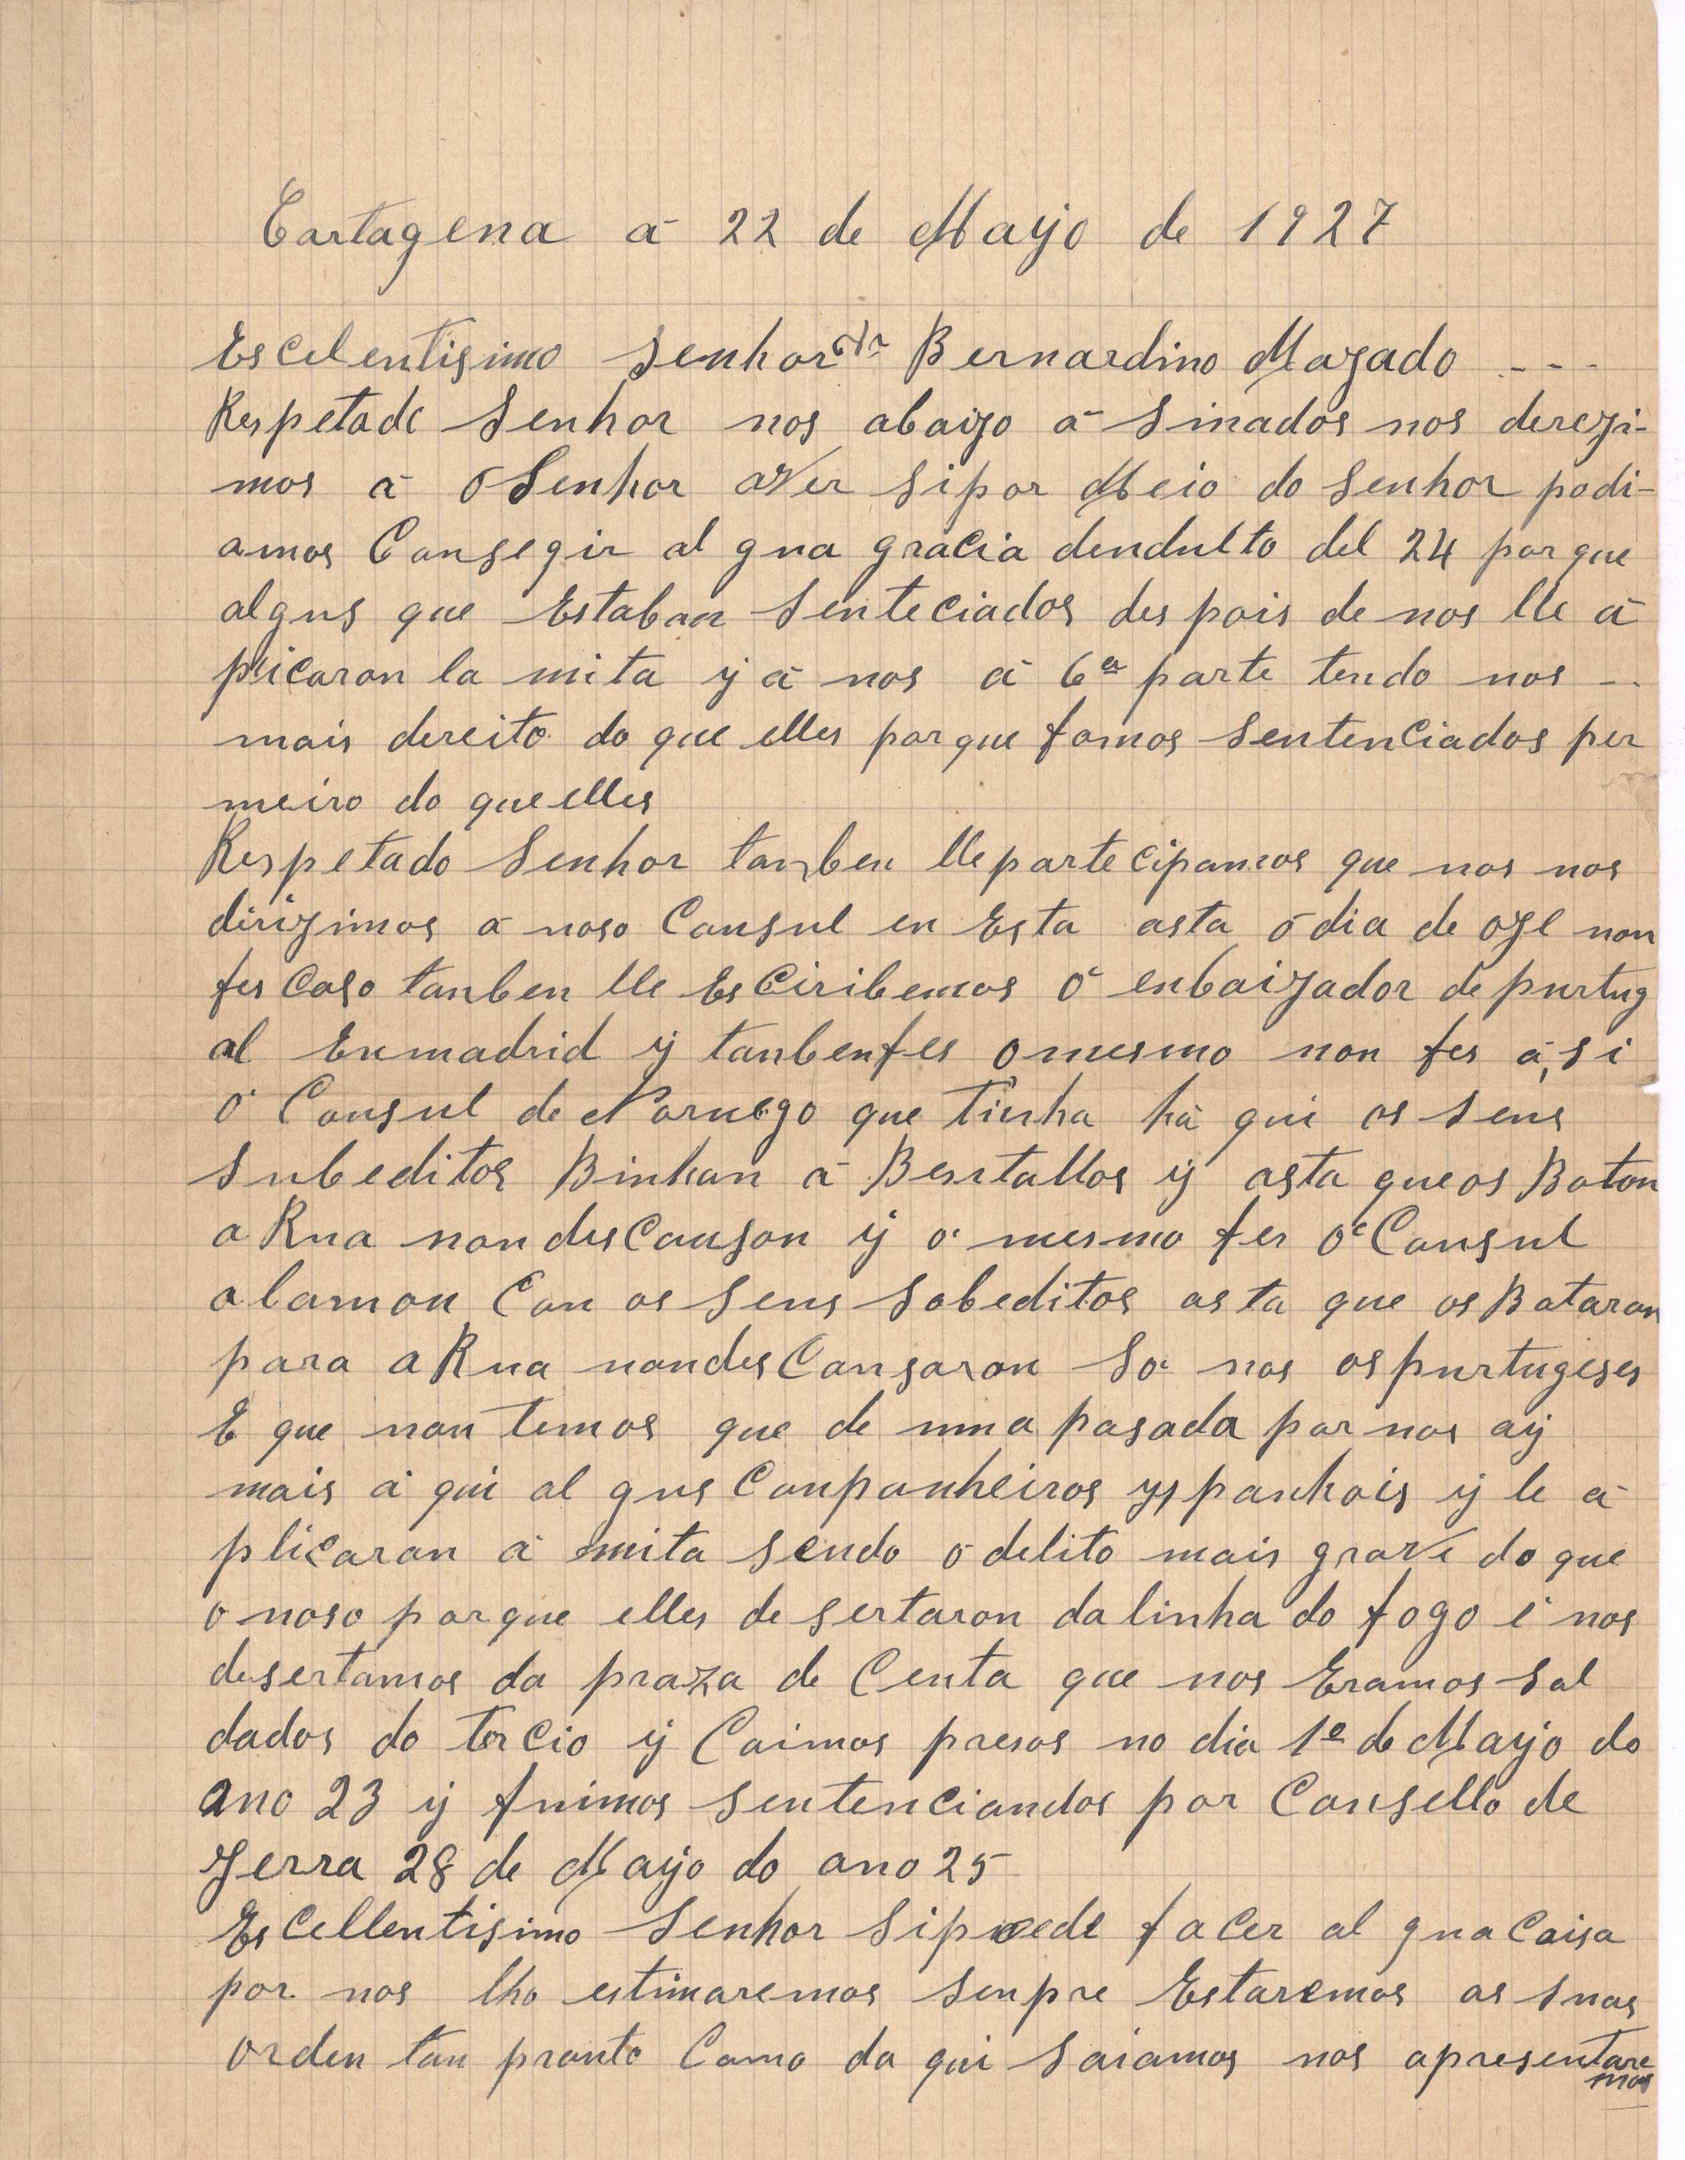 Cartagena á 22 de Mayo de 1927
Escelentisimo Senhor Dr Bernardino Mazado ---
Respetado Senhor nos abaixo á Sinados nos derexi-
mos á ó Senhor aver sipor Meio do Senhor podi-
amos Consegir al guа gracia dendulto del 24 por que
algus que Estaban Senteciados des pois de nos lle á
plicaron la mita y á nos á 6ª parte tendo nos --
mais dereito do que elles por que fomos Sentenciados per
meiro do que elles
Respetado Senhor tanben lle parte cipamos que nos nos
dirizimos á noso Consul en Esta asta ó dia de oje non
fes Caso tanben lle Es Ciribemos ó enbaizador de purtug
al Enmadrid y tanbenfes o mesmo non fes á, si
ó Consul de Noruego que Tinha há qui os seus
Subeditos Binhan á Besitallos y asta que os Boton
a Rua non des Canson y ó mesmo fes ó Consul
alamon Con os Seus Sobeditos asta que os Bataron
para a Rua nondes Cansaron So nos os purtugeses
E que non temos que de uma pasada por nos ay
mais á qui al gus Conpanheiros yspanhois y le á
plicaron á mita Sendo ó delito mais grave do que
o noso por que elles de sertaron da linha do fogo é nos
desertamos da praza de Ceuta que nos Eramos Sal
dados do tercio y Caimos presos no dia 1º de Mayo do
ano 23 y fuimos Sentenciandos por Consello de
Gerra 28 de Mayo do ano 25
Es Cellentisimo Senhor Si puede facer al gua Coisa
por nos lho estimaremos Senpre Estaremos as Suas
orden tan pronto Como da qui Saiamos nos apresentare
mos